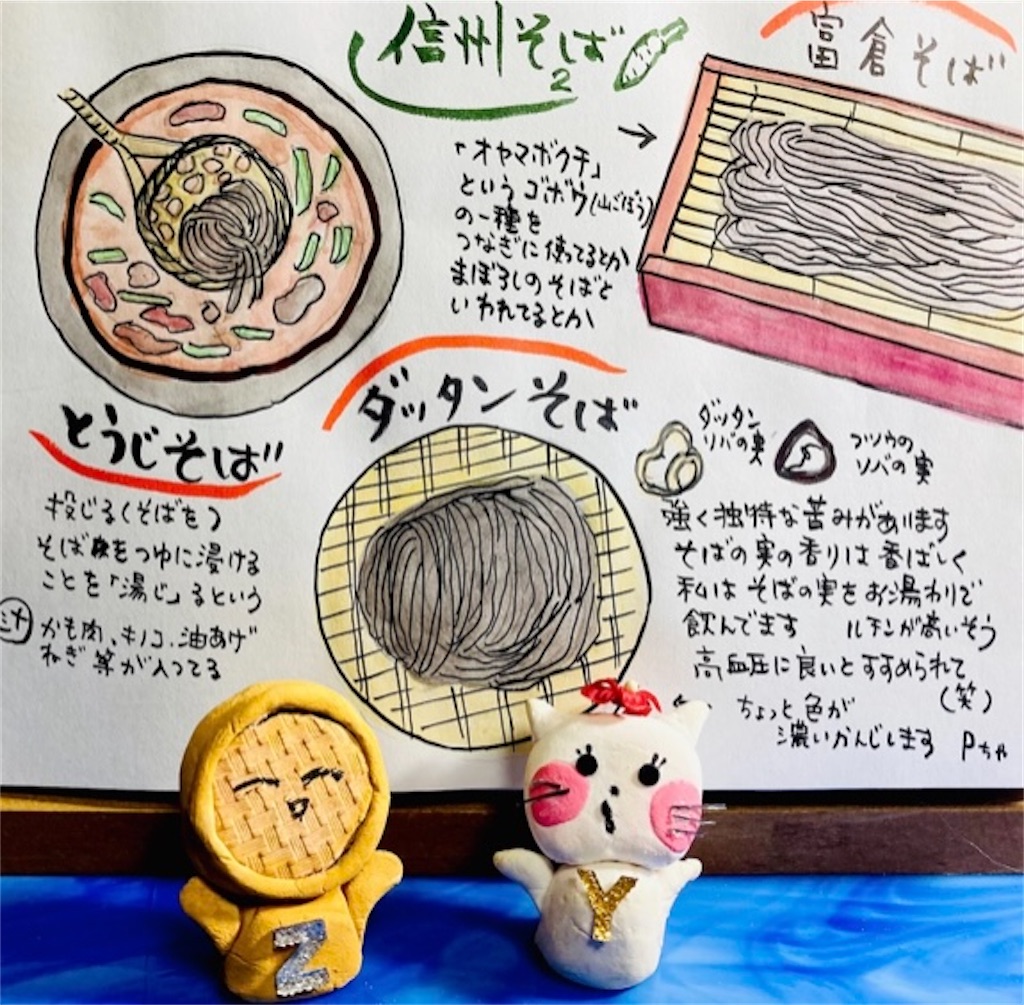 信州そば
2
富倉そば
「オヤマボクチ」
というゴボウ(山ごぼう)
の一種を
つなぎに使ってるとか
まぼろしのそばと
いわれてるとか
とうじそば
投じる(そばを)
そばをつゆに浸ける
ことを「湯じ」るという
汁 かも肉、キノコ、油あげ
ねぎ 等が入ってる
ダッタンそば
ダッタン
ソバの実
フツウの
ソバの実
強く独特な苦みがあります
そばの実の香りは香ばしく
私はそばの実をお湯わりで
飲んでます ルチンが高いそう
高血圧に良いとすすめられて
(笑)
ちょっと色が
濃いかんじします Pちゃ
Z
Y